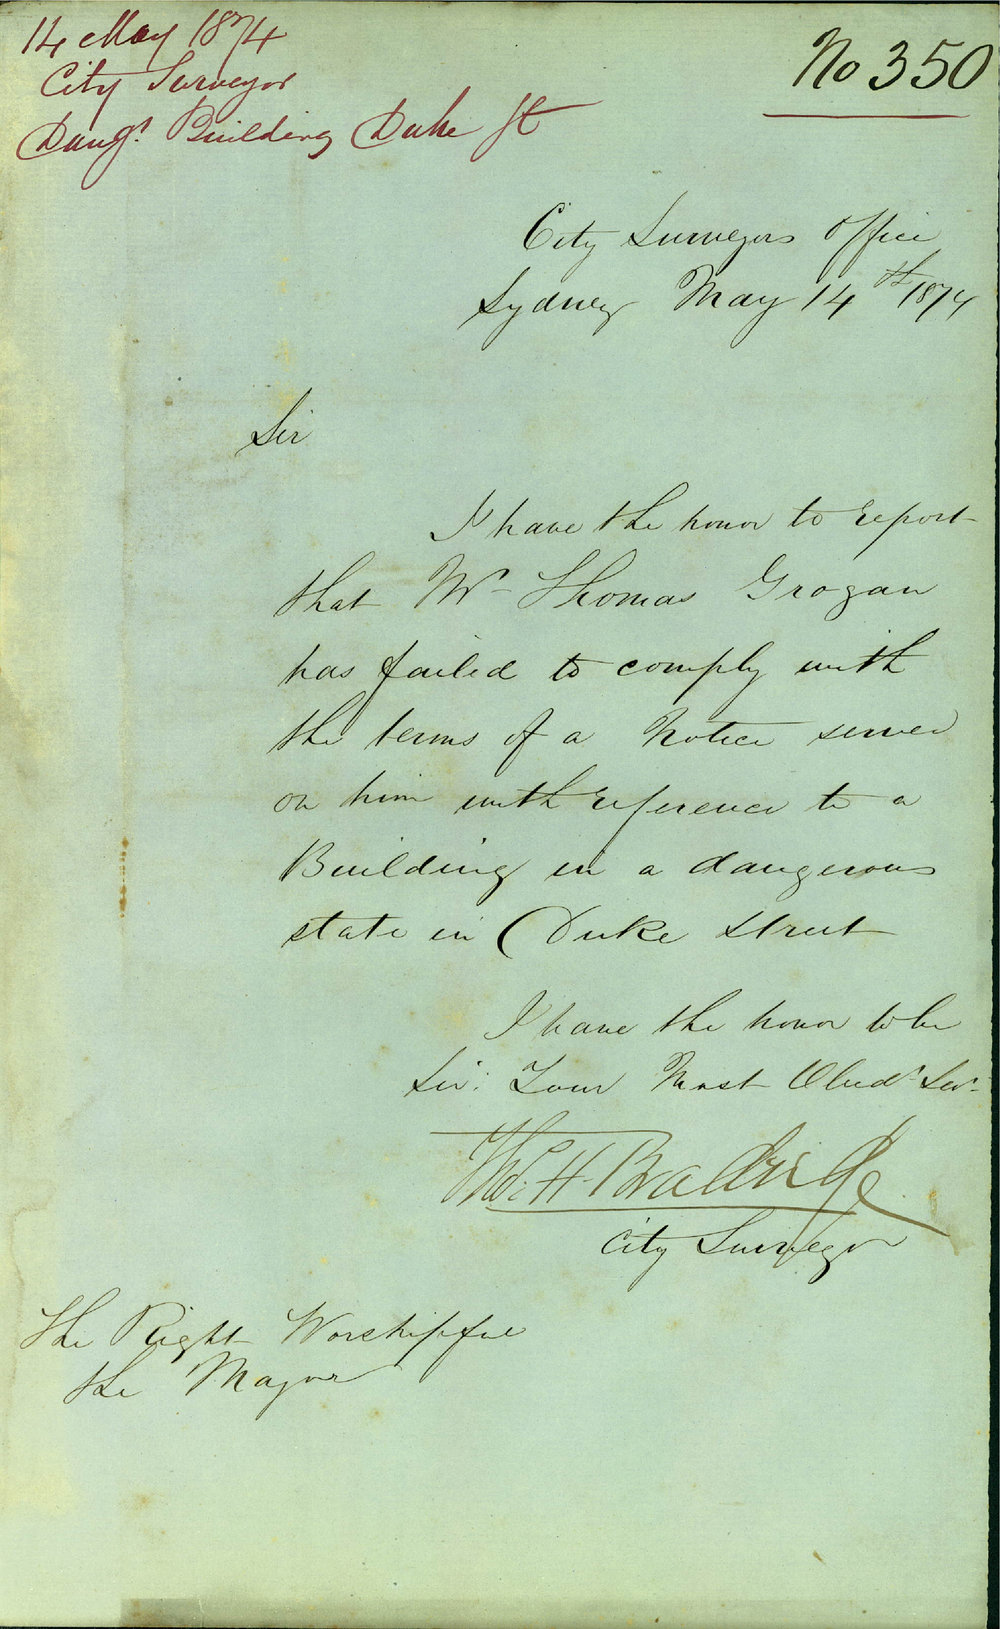 14 May 1874
City Surveyor
Dangs. Building Duke St
No 350
City Surveyors Office
Sydney May 14th 1874
Sir
I have the honor to report
that Mr Thomas Grogan
has failed to comply with
the terms of a Notice served
on him with reference to a
Building in a dangerous
state in Duke Street
I have the honor to be
Sir. Your Most Obedt Servt
Thos. H. Bradridge
City Surveyor
The Right Worshipful
the Mayor